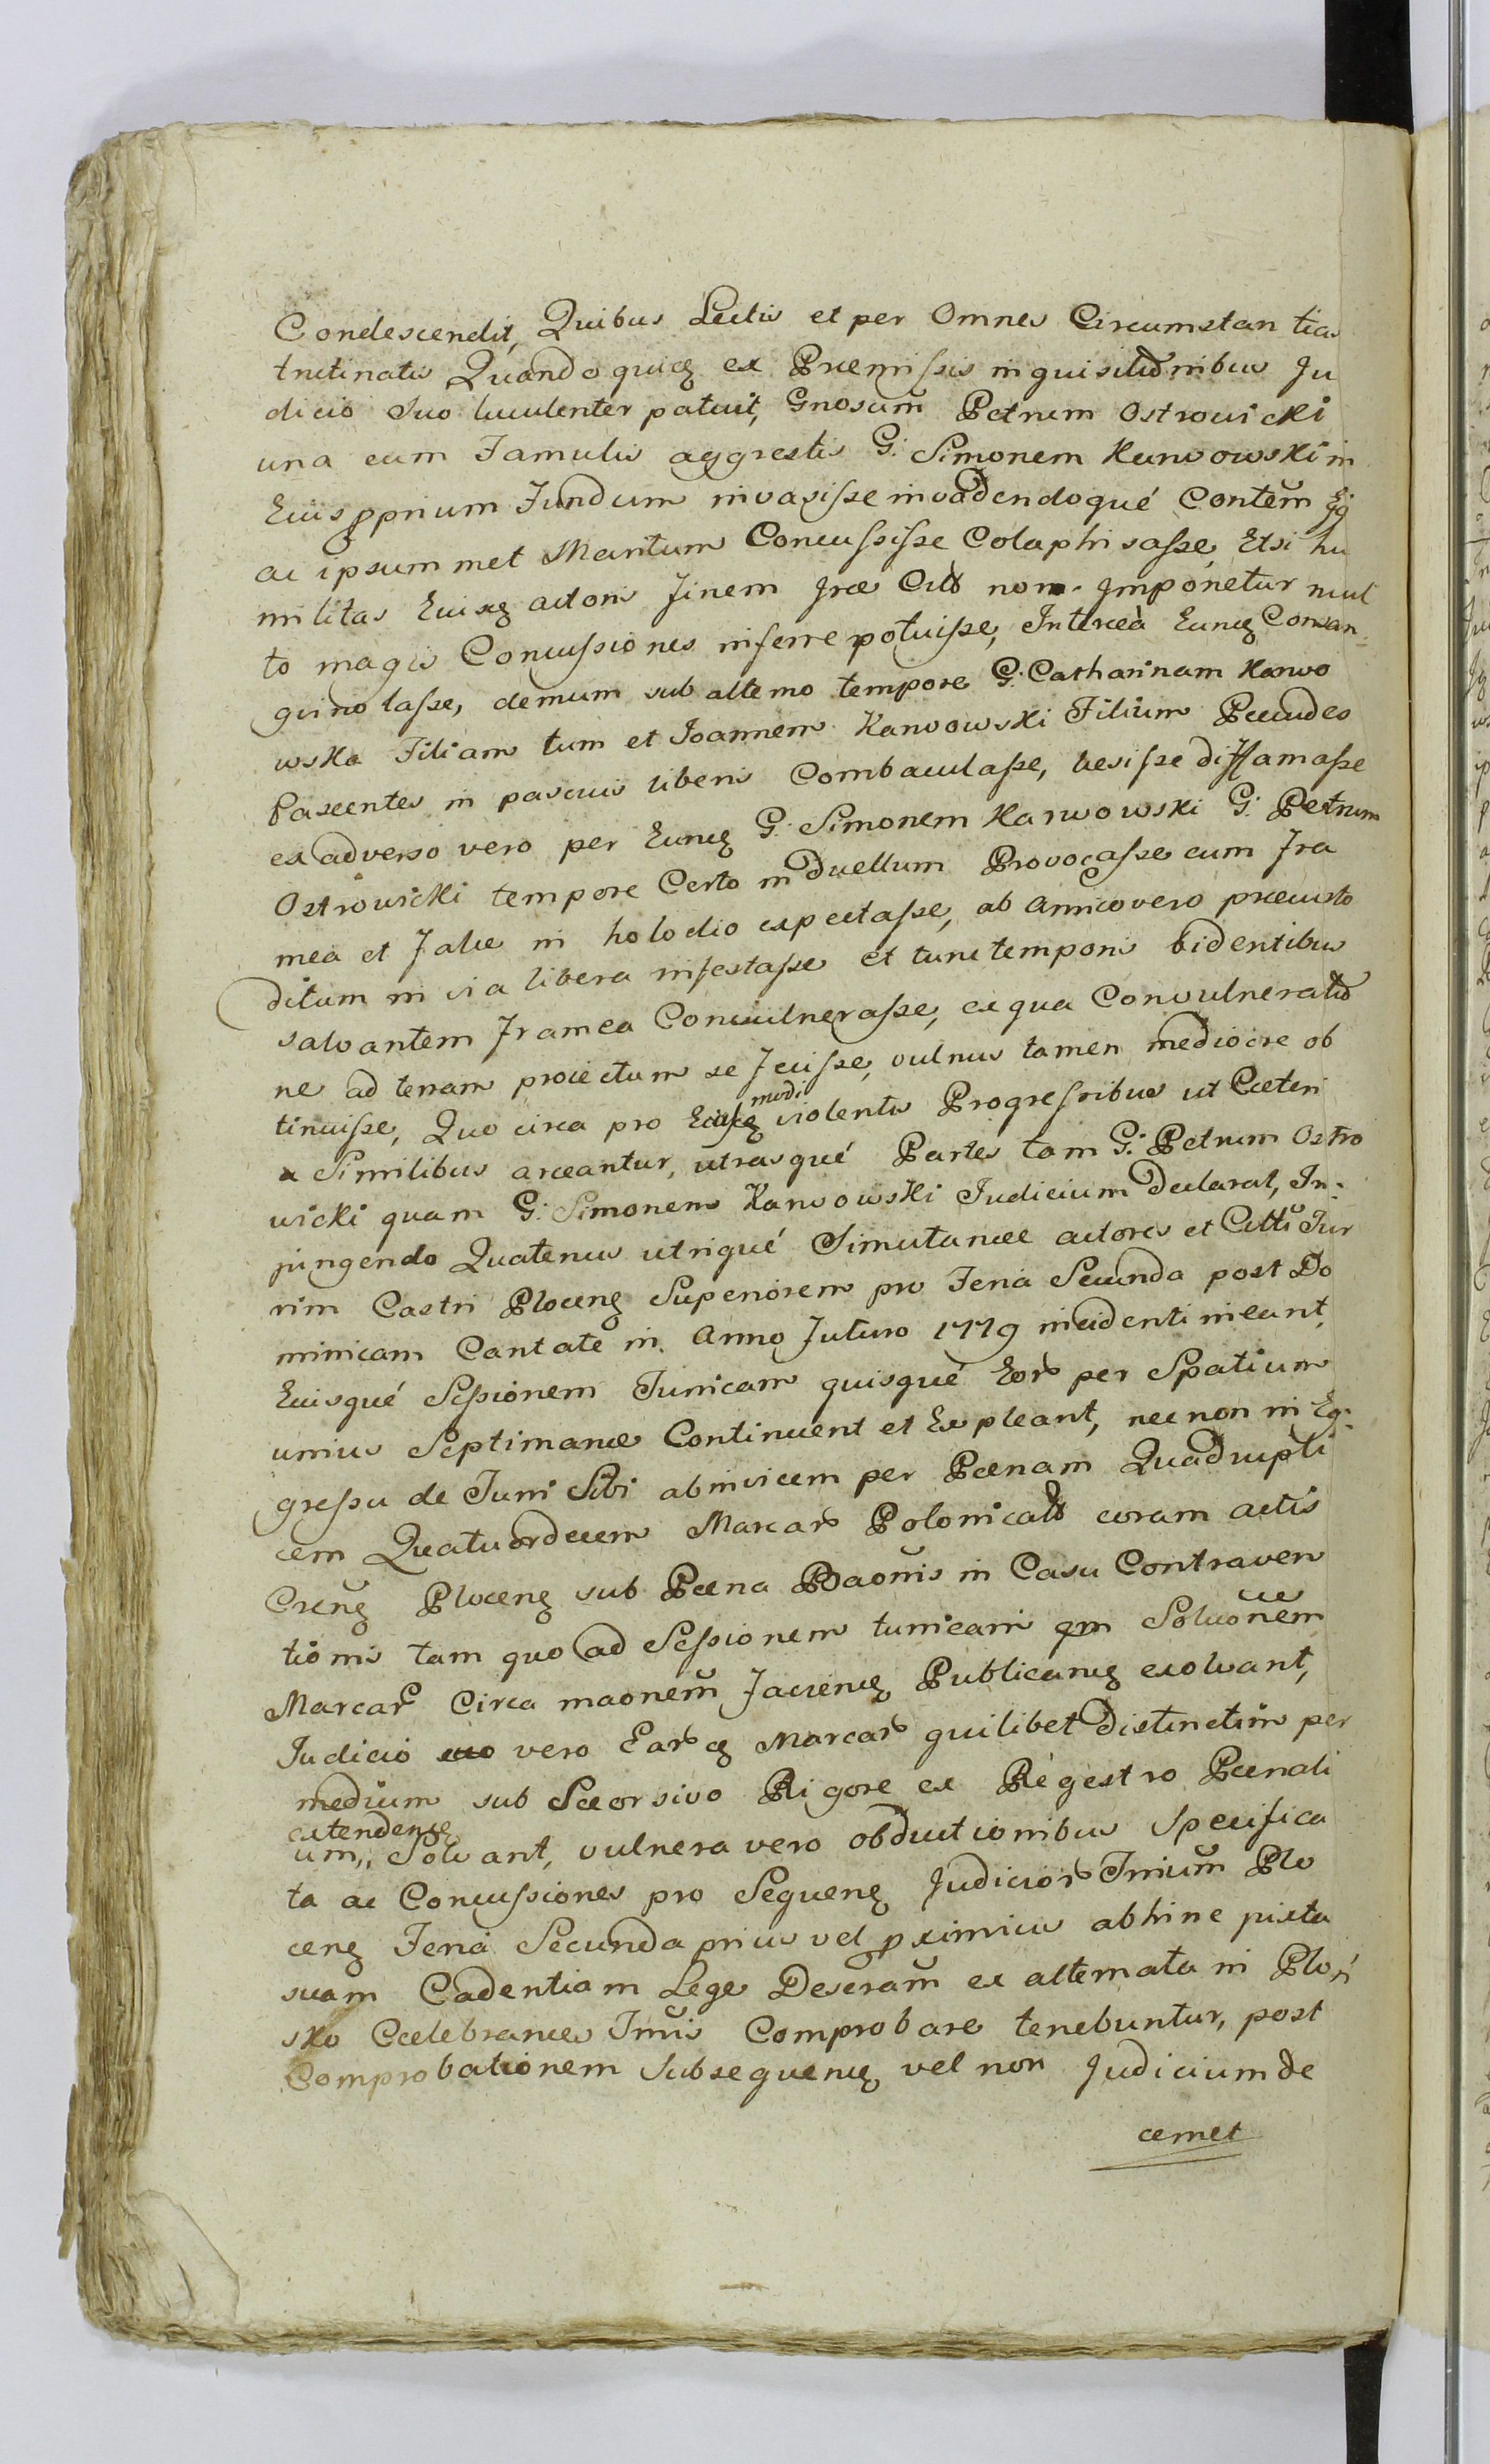 Condescendit, Quibus Lectis et per Omnes Circumstan tias
trutinatis Quandoquidẽ ex Præmissis inquisitionibus Ju
dicio suo luculenter patuit, Gnosum Petrum Ostrowicki
una cum Famulis aggrestis G: Simonem Karwowski in
Eius pprium Fundum invasisse invadendoqué Contem
ac ipsummet Maritum Concussisse Colaphisasse, Etsi hu
militas Eius actoris Finem Iræ non Imponetur mul
to magis Concussiones inferre potuisse, Intereà Eund Consan:
guinolasse, demum sub alterno tempore G: Catharinam Karwo
wska Filiam tum et Joannem Karwowski Filium Pecudes
Pascentes in pascuis liberis Combaculasse, læsisse diffamasse
ex adverso vero per Eund G: Simonem Karwowski G: Petrum
Ostrowicki tempore Certo in duellum Provocasse cum Fra
mea et Falce in holodio expectasse, ab amico vero præcusto
ditum in via libera infestasse et tunc temporis bidentibus
salvantem Framea Convulnerasse, ex qua Convulneratio
ne ad terram proiectum se Jecisse, vulnus tamen mediocre ob
tinuisse, Quo circa pro Eius modi violentis Progressibus ut Cæteri
a Similibus arceantur, utrasqué Partes tam G: Petrum Ostro
wicki quam G: Simonem Karwowski Judicium Declarat, In:
jungendo Quatenus utriqué Simultaneæ actores et Citti Tur
rim Castri Plocen Superiorem pro Feria Secunda post Do
minicam Cantate in Anno Futuro 1779 incidenti ineant,
Euisqué Sessionem Turricam quisqué Eor per Spatium
unius Septimanæ Continuent et Expleant, nec non in Eg:
gressu de Turri Sibi abinvicem per Pænam Quadrupli
cem Quatuordecem Marcar Polonicał coram actis
Cren Plocen sub Pæna Baonis in Casu Contraven
tionis tam quo ad Sessionem turricam qm Soluonem
Marcar Circa maonem Faciend Publicand exolvant,
Judicio vero Ear Marcar quilibet Distinctim per
medium sub Sæorsivo Rigore ex Régestro Pænali
extenden
um,, Solvant, vulnera vero obductionibus Specifica
ta ac Concussiones pro Sequen Judicior Trrium Plo
cen Feria Secunda prius vel pximius abhinc juxta
suam Cadentiam Lege Deseram ex alternata in Ploń
sko Cælebrandes Trris Comprobare tenebuntur, post
Comprobationem Subsequend vel non Judicium de
cernet